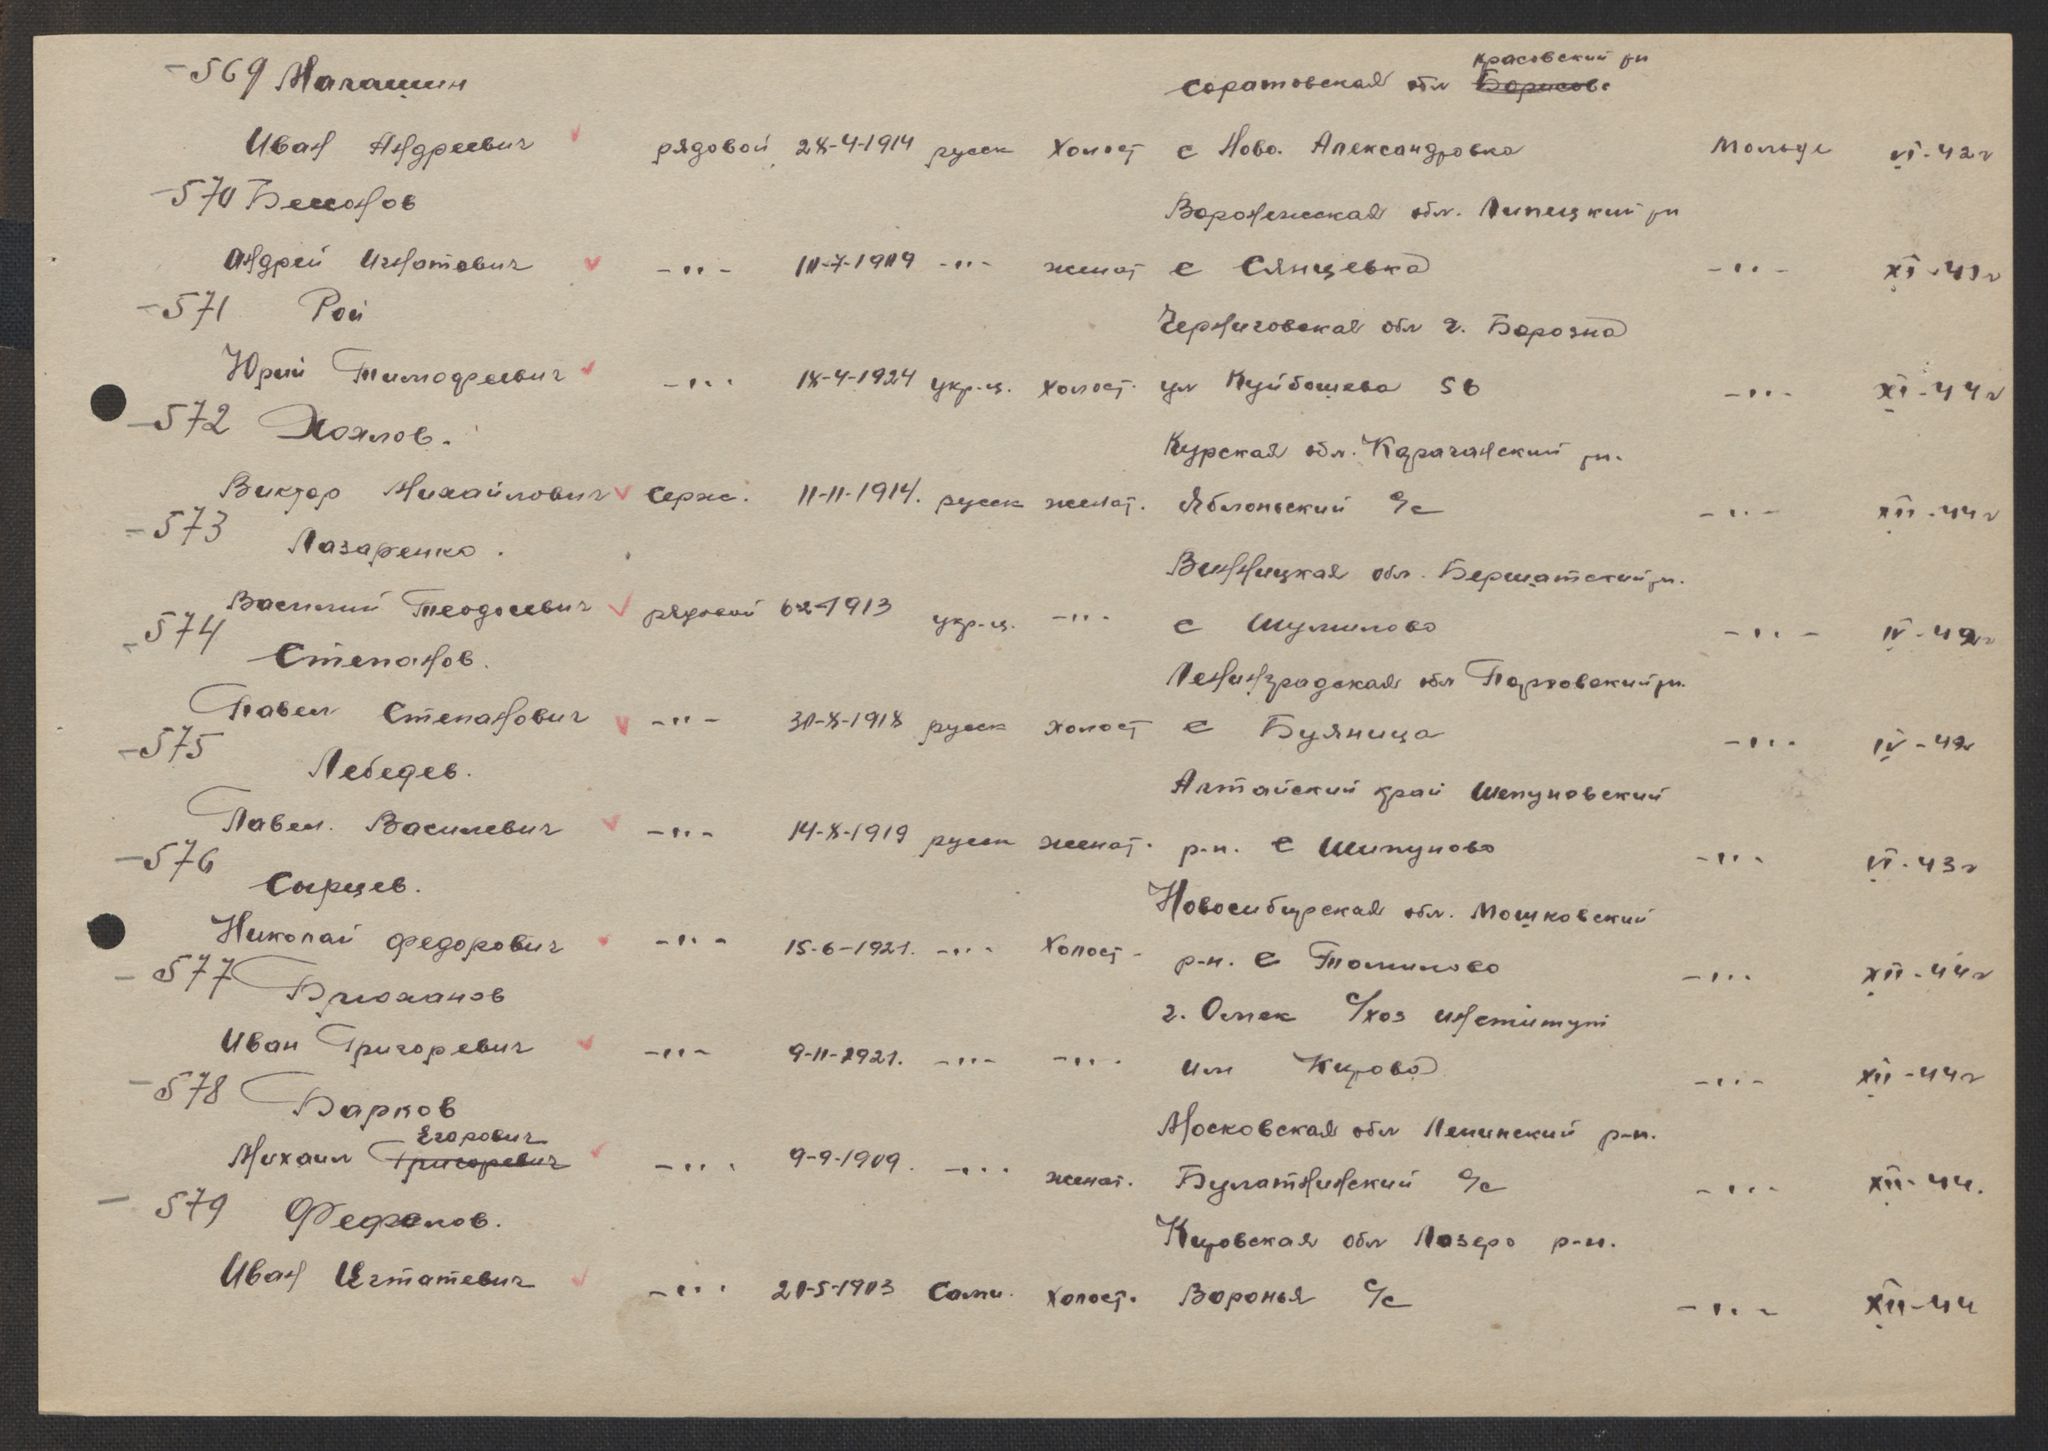 красовский рн
-569 Магашин саратовская обл Борисовс
Иван Андреевич рядовой 28-4-1914 русск Холост с Ново. Александровка Мольде VI-42г
-570 Воронежская обл. Липецкий рн
Андрей Игнатович -"- 10-7-1909 -"- женат с Сянцевка -"- XI-43г
-571 Рой Черниговская обл г. Борозна
Юрий Тимофеевич -"- 18-4-1924 укр-ц. холост. ул Куйбошева 56 -"- XI-44г
-572 Хохлов. Курская обл. Корочанский рн.
Виктор Михайлович серж. 11-11-1914. русск женат. Яблоньский с/с -"- XII-44г
-573 Лазаренко. Винницкая обл. Бершатский рн.
Василий Теодосевич рядовой 6-2-1913 укр-ц. -"- с Шумилово -"- IV-42г
-574 Степанов. Ленинградская обл Порховский рн.
Павел Степанович -"- 30-8-1918 русск холост с Буяница -"- IV-42г
-575 Лебедев. Алтайский край Шепуновский
Павел. Василевич -"- 14-8-1919 русск женат. р-н. с Шипуново -"- VI-43г
-576 Сырцев. Новосибирская обл. Мошковский
Николай Федорович -"- 15-6-1921. -"- Холост- р-н. с Томилово -"- XII-44г
-577 Брюханов г. Омск с/хоз институт
Иван Григоревич -"- 9-11-1921. -"- -"- им Кирова -"- XII-44г
-578 Барков Московская обл Ленинский р-н.
Егорович
Михаил Григоревич -"- 9-9-1909. -"- женат. Булатнинский с/с -"- XII-44.
- 579 Фефелов. Кировская обл Лазеро р-н.
Иван -"- 20-5-1903 Холост. Воронья с/с -"- XII-44